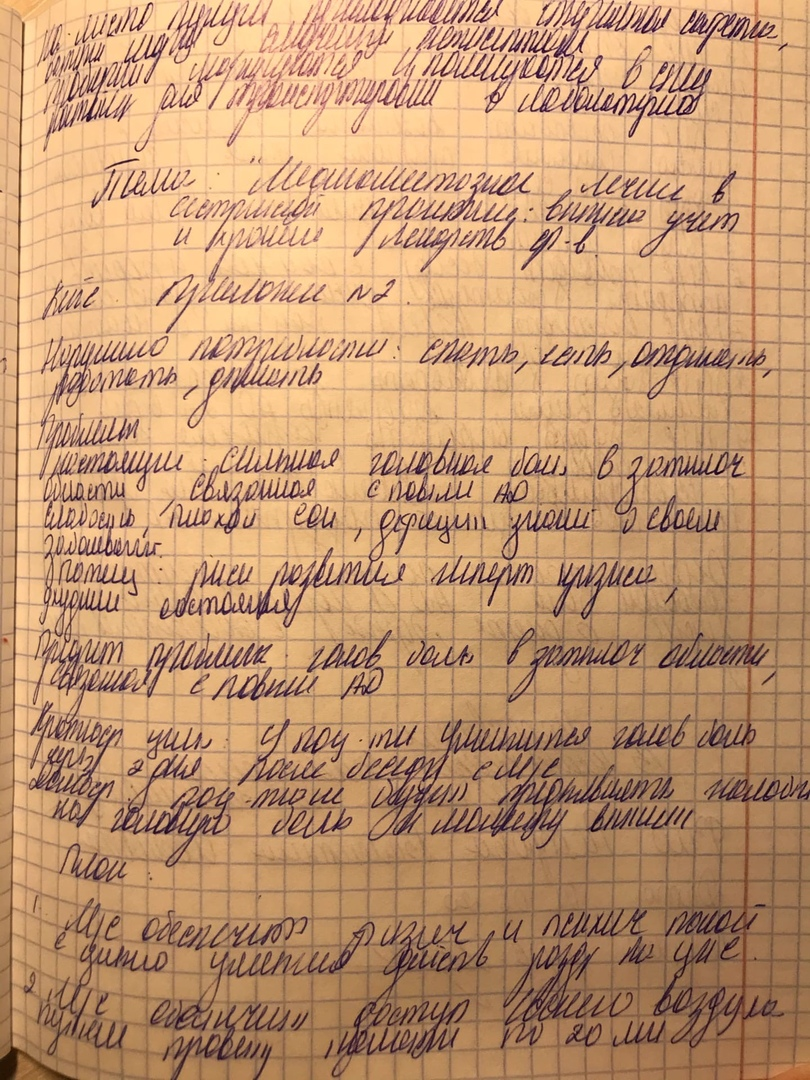 на место пункции стерильная салфетка,
маркируется и помещаются в спец
для транспортировки в лабораторию
Тема: "Медикаментозное лечен в
сестринской практике: выписка учет
и хранен лекарств ср-в.
приложен №2.
Нарушено потребности: спать, есть, отдыхать,
работать, дышать
Проблемы
настоящие: сильная головная боль в затылоч
области, связанная с повыш АД
слабость, плохой сон, дефицит знаний о своем
заболевании.
потенц: риск развития гиперт криза,
состояния
Приорит проблема: голов боль в затылоч области,
связанная с повыш АД
Краткоср цель: У пац-ти уменьшится голов боль
через 2 дня после беседы с м/с
Долгоср: пац-тка будет предъявлять жалобы
на головную боль к моменту выписки
План:
1. М/с обеспечить физич и психич покой
с целью уменьшен действ разд на ЦНС.
2 М/с обеспечит доступ свежего воздуха
путем проветр по 20 мин